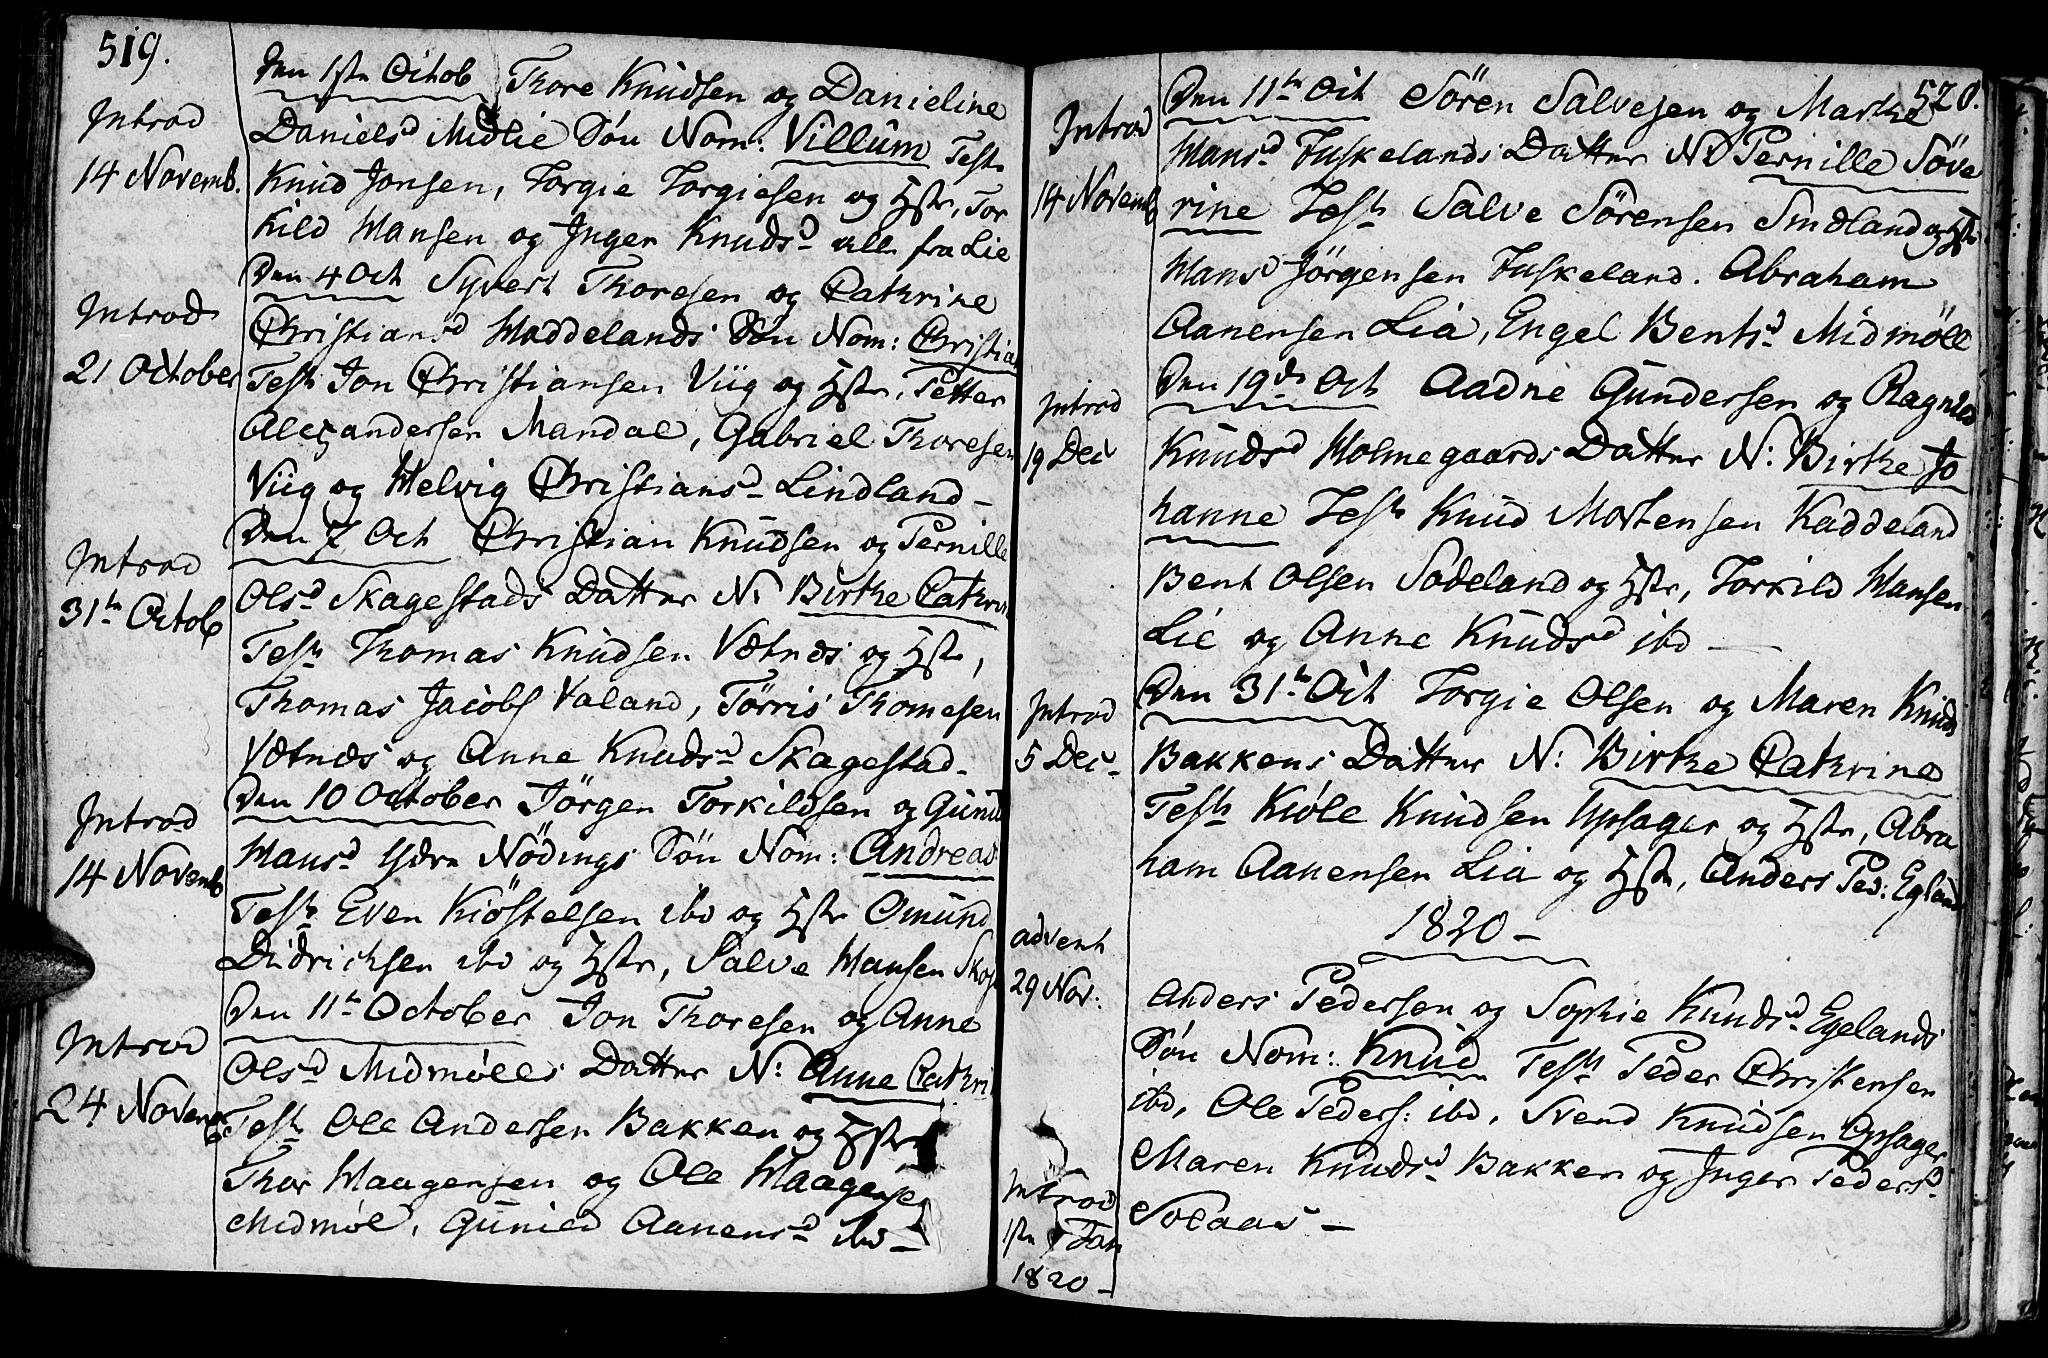 519.
Introd
14 Novemb.
Den 1ste Octob Thore Knudsen og Danieline
Danielsd Midlie Sön Nom: Villum Test
Knud Jonsen, Torgie Torgiesen og Hstr, Tor
kild Hansen og Inger Knudsd alle fra Lie
Introd
21 October
Den 4 Oct Syvert Thoresen og Cathrine
Christiansd Haddelands Sön Nom: Christian
Test Jon Christiansen Viig og Hstr, Petter
Alexandersen Mandal, Gabriel Thoresen
Viig og Helvig Christiansd Lindland –
Introd
31te Octob
Den 7 Oct Christian Knudsen og Pernille
Olsd Skagestads Datter N: Birthe Cathri
Test Thomas Knudsen Vætnes og Hstr,
Thomas Jacobs Valand, Törris Thomesen
Vætnes og Anne Knudsd Skagestad –
Introd
14 Novemb
Den 10 October Jörgen Torkildsen og Gunild
Hansd Ydre Nödings Sön Nom: Andreas
Test Even Kiöstelsen ibd og Hstr Omund
Didrichsen ibd og Hstr, Salve Hansen Skog
Introd
24 Novemb
Den 11te October Jon Thoresen og Anne
Olsd Midmölls Datter N: Anne Cathri
Test Ole Andersen Bakken og Hstr
Thor Haagensen og Ole Haagense
Midmöl, Gunild Aanensd ibd –
520.
Introd
14 Novemb
Den 11te Oct Sören Salvesen og Marthe
Hansd Fuskelands Datter N: Pernille Söve
rine Test Salve Sörensen Smdland og Hstr
Hans Jörgensen Fuskeland. Abraham
Aanensen Lia, Engel Bentsd Midmöll
Introd
19 Dec
Den 19de Oct Aadne Gundersen og Ragnild
Knudsd Holmegaards Datter N: Birthe Jo
hanne Test Knud Mortensen Kaddeland
Bent Olsen Sodeland og Hstr, Torkild Hansen
Lie og Anne Knudsd ibd –
Introd
5 Dec –
Den 31te Oct Torgie Olsen og Maren Knuds
Bakkens Datter N: Birthe Cathrine
Test Kiöle Knudsen Upsager og Hstr, Abra
ham Aanensen Lia og Hstr, Anders Ped: Egland
1820 –
advent
29 Nov:
Anders Pedersen og Sophie Knudsd Egelands
Sön Nom: Knud Test Peder Christensen
ibd, Ole Peders: ibd, Svend Knudsen Opsager
Maren Knudsd Bakken og Inger Pedersd
Solaas –
Introd
1ste Jan
1820 –